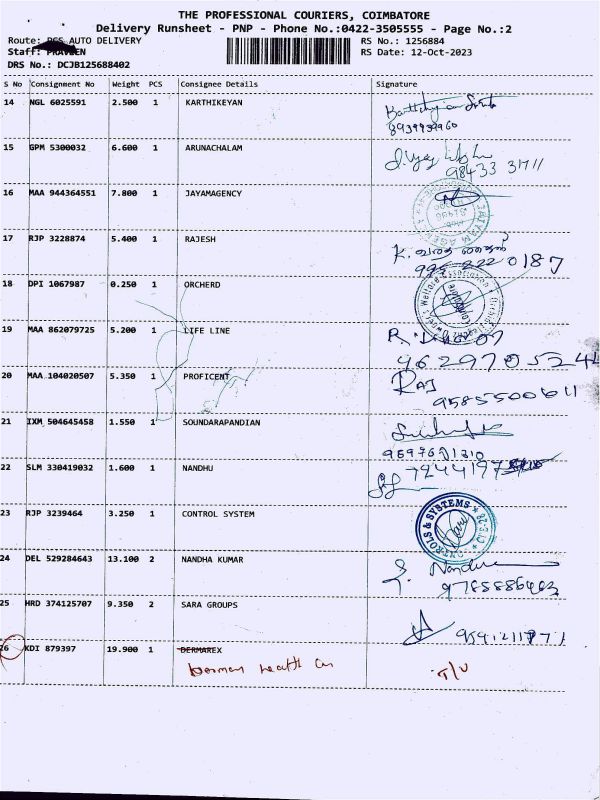 THE PROFESSIONAL COURIERS, COIMBATORE
Delivery Runsheet - PNP - Phone No.:0422-3505555 - Page No.:2
Route: PCS AUTO DELIVERY RS No.: 1256884
Staff: PRAVEEN RS Date: 12-Oct-2023
DRS No.: DCJB125688402
S No Consignment No Weight PCS Consignee Details Signature
14 NGL 6025591 2.500 1 KARTHIKEYAN
8939939960
15 GPM 5300032 6.600 1 ARUNACHALAM
98433 31711
16 MAA 944364551 7.800 1 JAYAMAGENCY
17 RJP 3228874 5.400 1 RAJESH
K.
995 222 0187
18 DPI 1067987 0.250 1 ORCHERD
19 MAA 862079725 5.200 1 LIFE LINE
9629705244
20 MAA 104020507 5.350 1 PROFICENT RAJ
9585500611
21 IXM 504645458 1.550 1 SOUNDARAPANDIAN
22 SLM 330419032 1.600 1 NANDHU
23 RJP 3239464 3.250 1 CONTROL SYSTEM
CONTROLS & SYSTEMS
24 DEL 529284643 13.100 2 NANDHA KUMAR
25 HRD 374125707 9.350 2 SARA GROUPS
26 KDI 879397 19.900 1 DERMAREX
T/U